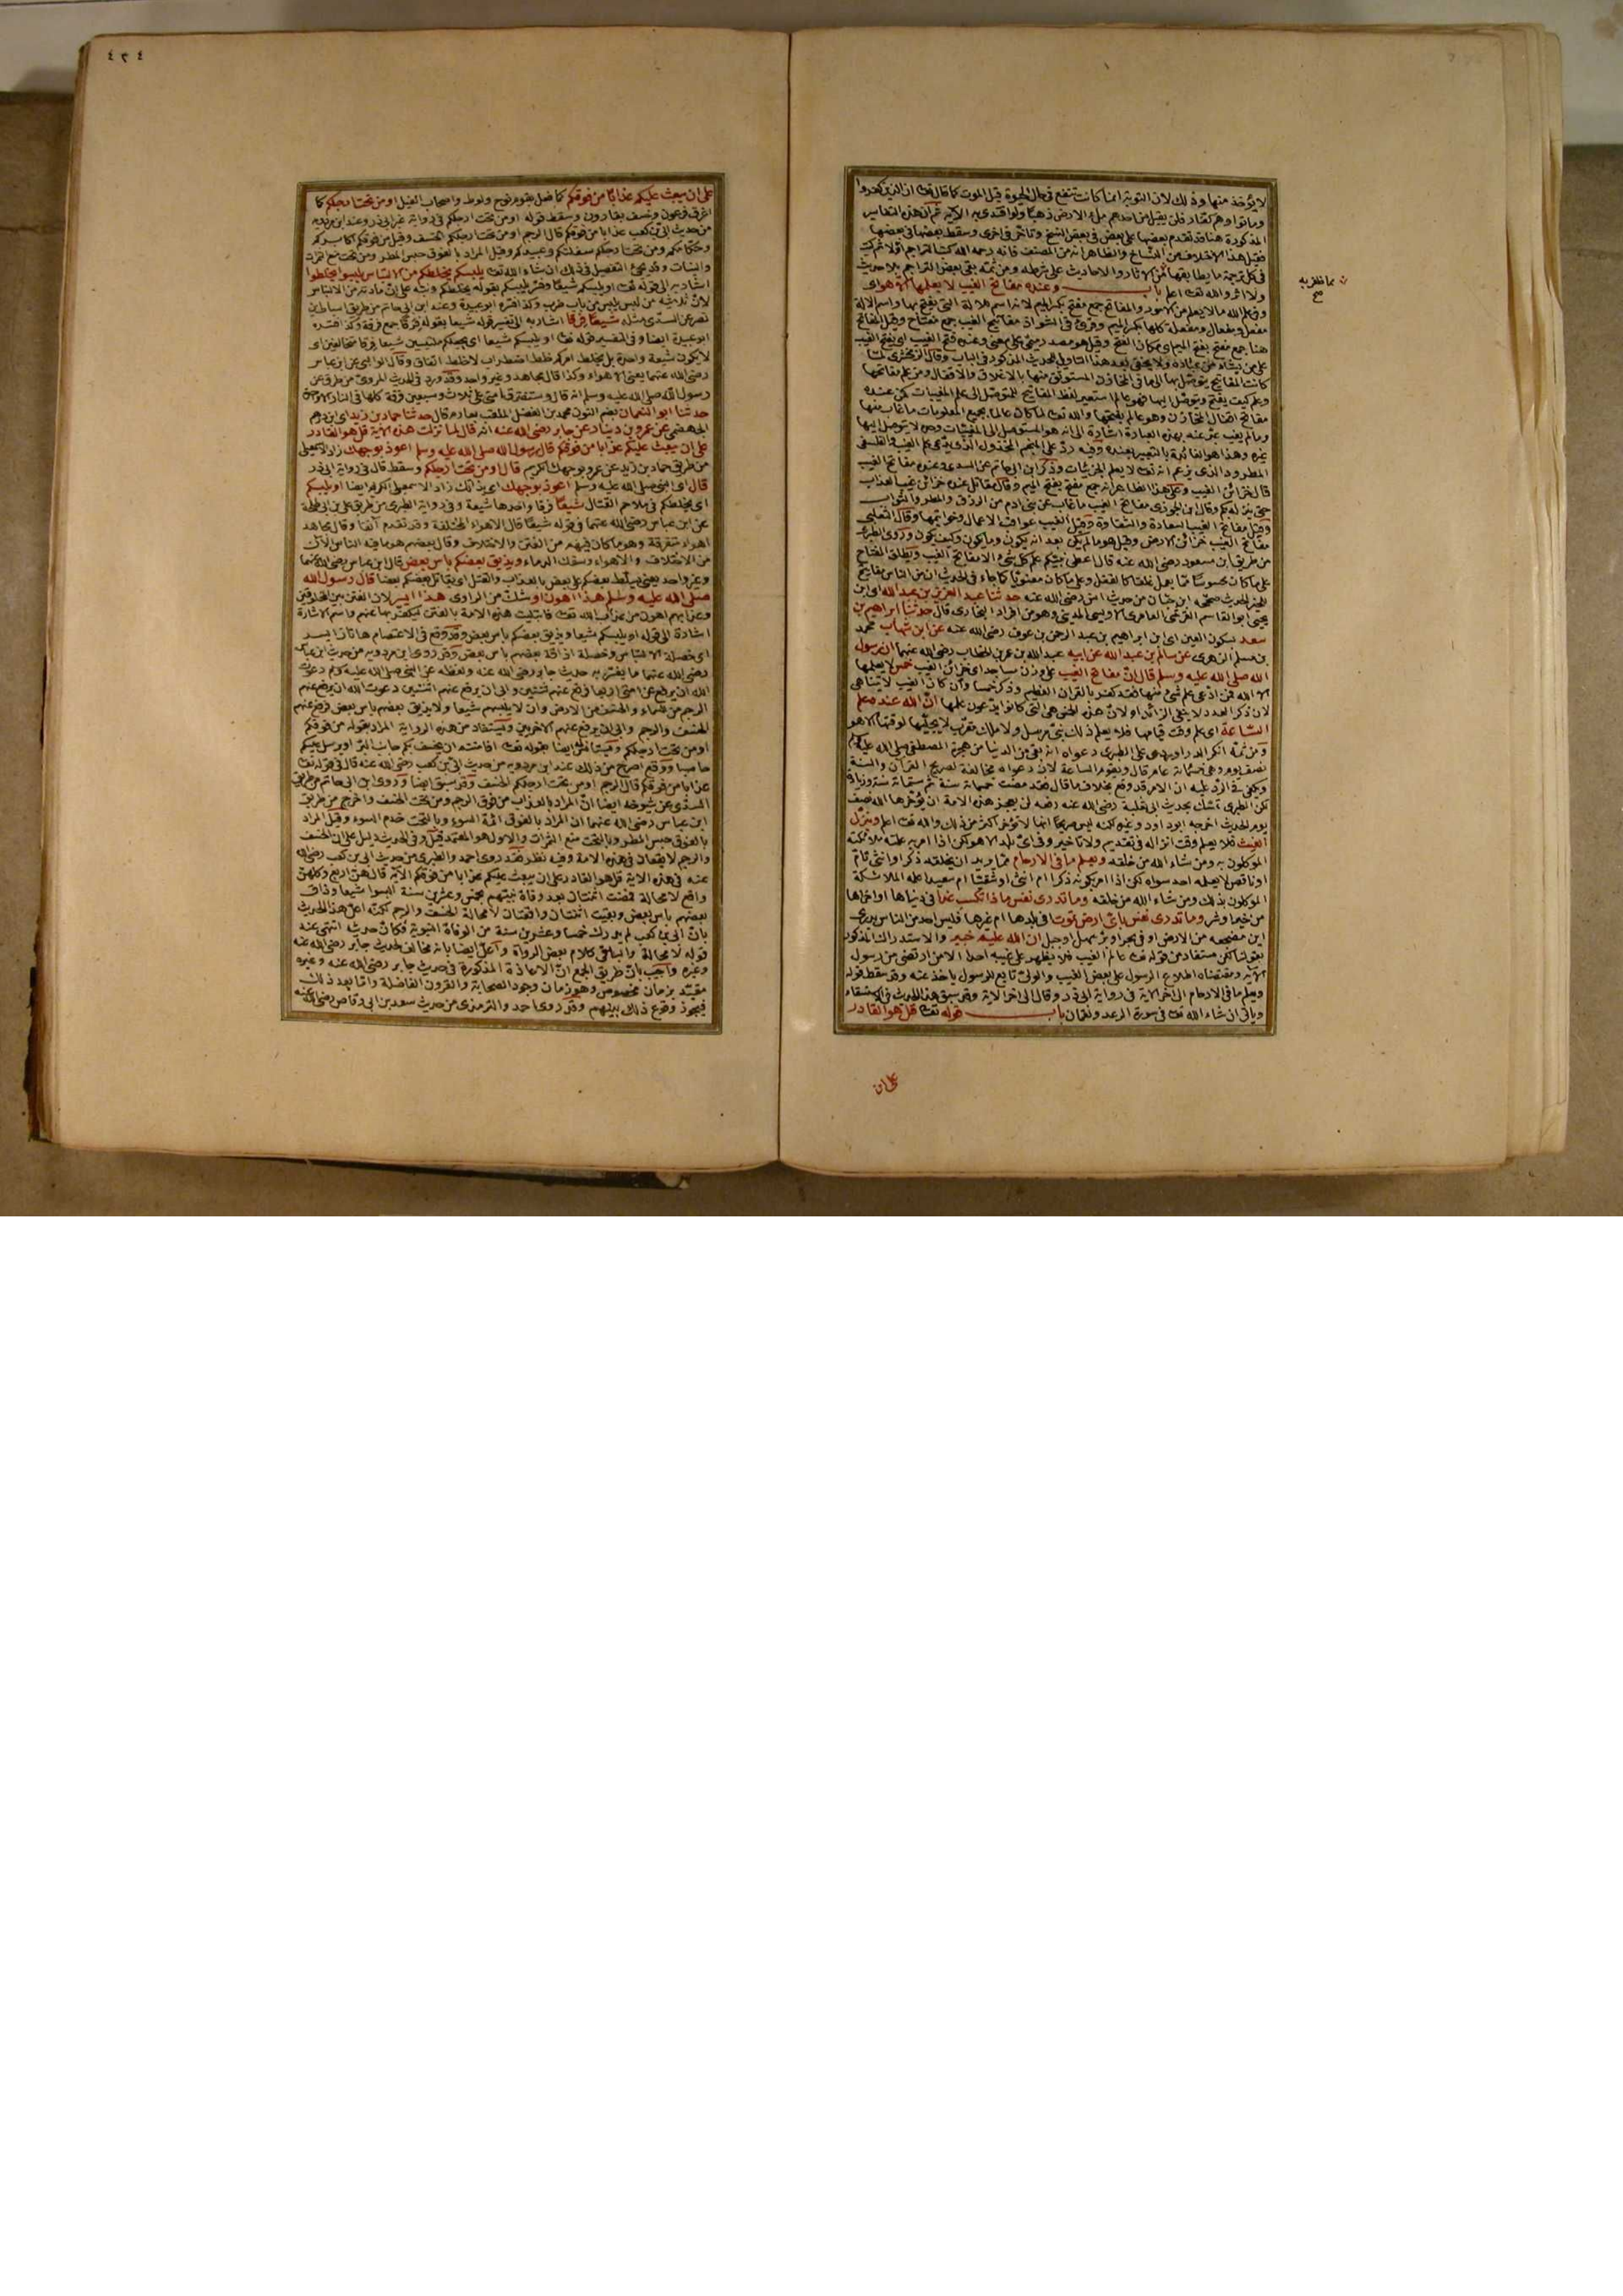 لا يؤخذ منها وذلك لان التوبة انما كانت تنفع في حال الحيوة قبل الموت كما قال تعالى ان الذين كفروا
وماتوا وهم كفار فلن يقبل من احدهم ملء الارض ذهبا ولو افتدى به الآية ثم ان هذه التفاسير
المذكورة هنا قد تقدم بعضها على بعض في بعض النسخ وتأخر في اخرى وسقط بعضها في بعضها
فقيل هذا الاختلاف من النساخ والظاهر انه من المصنف فانه رحمه الله كتب التراجم اولا ثم كتب
في كل ترجمة ما يطابقها من الآثار والاحاديث على شرطه ومن ثمة بقي بعض التراجم بلا حديث
ولا اثر والله تعالى اعلم باب وعنده مفاتح الغيب لا يعلمها الا هو اى
هنا جمع مفتح بفتح الميم اى مكان الفتح وقيل هو مصدر ميمي على معنى وعنده فتح الغيب اى يفتح الغيب
على من يشاء من عباده ولا يخفى بعد هذا التأويل للحديث المذكور في الباب وقال الزمخشرى لما
كانت المفاتيح يتوصل بها الى ما في المخازن المستوثق منها بالاغلاق والاقفال ومن علم مفاتحها
وعلم كيف يفتح ويتوصل اليها فهو عالم استعير لفظ المفاتيح للتوصل الى علم المغيبات كمن عنده
مفاتح اقفال المخازن وهو عالم بفتحها والله تعالى لما كان عالما بجميع المعلومات ما غاب منها
وما لم يغب عبر عنه بهذه العبارة اشارة الى انه هو المتوصل الى المغيبات وحده لا يتوصل اليها
غيره وهذا هو الفائدة بالتعبير بعنده وفيه رد على المنجم المخذول الذى يدعى علم الغيب والفلسفى
المطرود الذى يزعم انه تعالى لا يعلم الجزئيات وذكر ابن ابى حاتم عن السدى وعنده مفاتح الغيب
قال خزائن الغيب وعلى هذا الظاهر انه جمع مفتح بفتح الميم وقال مقاتل عنده خزائن غيب العذاب
حتى ينزله بكم وقال ابن الجوزى مفاتح الغيب ما غاب عن بنى ادم من الرزق والمطر والثواب
وقيل مفاتح الغيب السعادة والشقاوة وقيل الغيب عواقب الاعمال وخواتيمها وقال الثعلبي
مفاتح الغيب خزائن الارض وقيل هو ما لم يكن بعد انه يكون وما يكون وكيف يكون وروى الطبرى
من طريق ابن مسعود رضى الله عنه قال اعطى نبيكم علم كل شىء الا مفاتح الغيب ويطلق المفتاح
على ما كان محسوسا مما يحل غلقا كالقفل وعلى ما كان معنويا كما جاء في الحديث ان من الناس مفاتيح
للخير الحديث صححه ابن حبان من حديث انس رضى الله عنه حدثنا عبد العزيز بن عبد الله اى ابن
يحيى ابو القاسم القرشى العامرى الاويسى المدينى وهو من افراد البخارى قال حدثنا ابراهيم بن
سعد بسكون العين اى ابن ابراهيم بن عبد الرحمن بن عوف رضى الله عنه عن ابن شهاب محمد
بن مسلم الزهرى عن سالم بن عبد الله عن ابيه عبد الله بن عمر بن الخطاب رضى الله عنهما ان رسول
الله صلى الله عليه وسلم قال ان مفاتح الغيب على وزن مساجد اى خزائن الغيب خمس لا يعلمها
الا الله فمن ادعى علم شىء منها فقد كفر بالقران العظيم وذكر خمسا وان كان الغيب لا يتناهى
لان ذكر العدد لا ينفى الزائد او لان هذه الخمس هى التى كانوا يدعون علمها ان الله عنده علم
الساعة اى علم وقت قيامها فلا يعلم ذلك نبى مرسل ولا ملك مقرب لا يجليها لوقتها الا هو
ومن ثمة انكر الداودى على الطبرى دعواه انه بقى من الدنيا من هجرة المصطفى صلى الله عليه وسلم
نصف يوم وهى خمسمائة عام قال وتقوم الساعة لان دعواه مخالفة لصريح القرآن والسنة
ويكفى في الرد عليه ان الامر قد وقع بخلاف ما قال فقد مضت خمسمائة سنة ثم ستمائة سنة وزيادة
لكن الطبرى تمسك بحديث ابى ثعلبة رضى الله عنه رفعه لن يعجز هذه الامة ان يؤخرها الله نصف
يوم الحديث اخرجه ابو داود وغيره لكنه ليس صريحا انها لا تؤخر اكثر من ذلك والله تعالى اعلم وينزل
الغيث فلا يعلم وقت انزاله في تقديم ولا تأخير وفي اى بلد الا هو لكن اذا امر به علمته ملائكته
الموكلون به ومن شاء الله من خلقه ويعلم ما في الارحام مما يريد ان يخلقه ذكر او انثى تام
او ناقص لا يعلمه احد سواه لكن اذا امر بكونه ذكرا ام انثى او شقيا ام سعيدا علمه الملائكة
الموكلون بذلك ومن شاء الله من خلقه وما تدرى نفس ماذا تكسب غدا في دنياها او اخراها
من خير او شر وما تدرى نفس باى ارض تموت افى بلدها ام غيرها فليس احد من الناس يدرى
اين مضجعه من الارض او في بحر او بر سهل او جبل ان الله عليم خبير والاستدراك المذكور
بقولنا لكن مستفاد من قوله تعالى عالم الغيب فلا يظهر على غيبه احدا الا من ارتضى من رسول
الآية ومقتضاه اطلاع الرسول على بعض الغيب والولى تابع للرسول ياخذ عنه وقد سقط قوله
ويعلم ما في الارحام الى اخر الآية في رواية ابى ذر وقال الى اخر الآية وقد سبق هذا الحديث في الاستسقاء
وياتى ان شاء الله تعالى في سورة الرعد ولقمان باب قوله تعالى قل هو القادر
على ان
٤٢٤
على ان يبعث عليكم عذابا من فوقكم كما فعل بقوم نوح ولوط واصحاب الفيل او من تحت ارجلكم كما
اغرق فرعون وخسف بقارون وسقط قوله او من تحت ارجلكم في رواية غير ابى ذر وعند ابن مردويه
من حديث ابى بن كعب عذابا من فوقكم قال الرجم او من تحت ارجلكم الخسف وقيل من فوقكم اكابركم
وحكامكم ومن تحت ارجلكم سفلتكم وعبيدكم وقيل المراد بالفوق حبس المطر ومن تحت منع الثمرات
والنبات وقد يجئ التفصيل في ذلك ان شاء الله تعالى يلبسكم يخلطكم من الالتباس يلبسوا يخلطوا
اشار به الى قوله تعالى او يلبسكم شيعا وفسر يلبسكم بقوله يخلطكم ونبه على ان مادته من الالتباس
نصر عن السدى مثله شيعا فرقا اشار به الى تفسير قوله شيعا بقوله فرقا جمع فرقة وكذا فسره
ابو عبيدة ايضا
لا يكون شيعة واحدة بل يخلط امركم خلط اضطراب لا خلط اتفاق وقال الوالبى عن ابن عباس
رضى الله عنهما يعنى الاهواء وكذا قال مجاهد وغير واحد وقد ورد في الحديث المروى من طرق عن
رسول الله صلى الله عليه وسلم انه قال وستفترق امتى على ثلاث وسبعين فرقة كلها في النار الا واحدة
حدثنا ابو النعمان بضم النون محمد بن الفضل الملقب بعارم قال حدثنا حماد بن زيد اى ابن درهم
الجهضمى عن عمرو بن دينار عن جابر رضى الله عنه انه قال لما نزلت هذه الآية قل هو القادر
على ان يبعث عليكم عذابا من فوقكم قال رسول الله صلى الله عليه وسلم اعوذ بوجهك زاد الاسمعيلى
من طريق حماد بن زيد عن عمرو بوجهك الكريم قال او من تحت ارجلكم وسقط قال في رواية ابى ذر
قال اى النبى صلى الله عليه وسلم اعوذ بوجهك اى بذاتك زاد الاسمعيلى الكريم ايضا او يلبسكم
اى يخلطكم في ملاحم القتال شيعا فرقا واحدها شيعة وفي رواية الطبرى من طريق على بن ابى طلحة
عن ابن عباس رضى الله عنهما في قوله شيعا قال الاهواء المختلفة وقد تقدم آنفا وقال مجاهد
اهواء متفرقة وهو ما كان فيهم من الفتن والاختلاف وقال بعضهم هو ما فيه الناس الآن
من الاختلاف والاهواء وسفك الدماء ويذيق بعضكم بأس بعض قال ابن عباس رضى الله عنهما
وغير واحد يعنى يسلط بعضكم على بعض بالعذاب والقتل اى يقاتل بعضكم بعضا قال رسول الله
صلى الله عليه وسلم هذا اهون او شك من الراوى هذا ايسر لان الفتن بين المخلوقين
وعذابهم اهون من عذاب الله تعالى فابتليت هذه الامة بالفتن ليكفر بها عنهم واسم الاشارة
اشارة الى قوله او يلبسكم شيعا ويذيق بعضكم بأس بعض وقد وقع في الاعتصام هاتان ايسر
اى خصلة الالتباس وخصلة اذاقة بعضهم بأس بعض وقد روى ابن مردويه من حديث ابن عباس
رضى الله عنهما ما يفسر به حديث جابر رضى الله عنه ولفظه عن النبى صلى الله عليه وسلم دعوت
الله ان يرفع عن امتى اربعا فرفع عنهم ثنتين وابى ان يرفع عنهم اثنتين دعوت الله ان يرفع عنهم
الرجم من السماء والخسف من الارض وان لا يلبسهم شيعا ولا يذيق بعضهم بأس بعض فرفع عنهم
الخسف والرجم وابى ان يرفع عنهم الاخريين ويستفاد من هذه الرواية المراد بقوله من فوقكم
او من تحت ارجلكم ويستأنس ايضا بقوله تعالى افامنتم ان يخسف بكم جانب البر او يرسل عليكم
حاصبا ووقع اصرح من ذلك عند ابن مردويه من حديث ابى بن كعب رضى الله عنه قال في قوله تعالى
عذابا من فوقكم قال الرجم او من تحت ارجلكم الخسف وقد سبق ايضا وروى ابن ابى حاتم من طريق
السدى عن شيوخه ايضا ان المراد بالعذاب من فوق الرجم ومن تحت الخسف واخرج من طريق
ابن عباس رضى الله عنهما ان المراد بالفوق ائمة السوء وبالتحت خدم السوء وقيل المراد
بالفوق حبس المطر وبالتحت منع الثمرات والاول هو المعتمد قيل وفي الحديث دليل على ان الخسف
والرجم لا يقعان في هذه الامة وفيه نظر فقد روى احمد والطبرى من حديث ابى بن كعب رضى الله
عنه في هذه الآية قل هو القادر على ان يبعث عليكم عذابا من فوقكم الآية قال هن اربع وكلهن
واقع لا محالة فمضت اثنتان بعد وفاة نبيهم بخمس وعشرين سنة البسوا شيعا وذاق
بعضهم بأس بعض وبقيت اثنتان واقعتان لا محالة الخسف والرجم لكنه اعل هذا الحديث
بان ابى بن كعب لم يدرك خمسا وعشرين سنة من الوفاة النبوية فكان حديثه انتهى عند
قوله لا محالة والباقى كلام بعض الرواة واعل ايضا بانه مخالف لحديث جابر رضى الله عنه
وغيره واجيب بان طريق الجمع ان الاعاذة المذكورة في حديث جابر رضى الله عنه وغيره
مقيد بزمان مخصوص وهو زمان وجود الصحابة والقرون الفاضلة واما بعد ذلك
فيجوز وقوع ذلك بينهم وقد روى احمد والترمذى من حديث سعد بن ابى وقاص رضى الله عنه